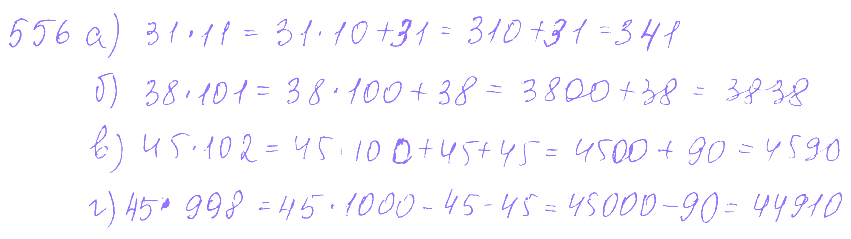 556 а) 31·11 = 31·10+31 = 310+31 = 341
б) 38·101 = 38·100+38 = 3800+38 = 3838
в) 45·102 = 45·100+45+45 = 4500+90 = 4590
г) 45·998 = 45·1000-45-45 = 45000-90 = 44910